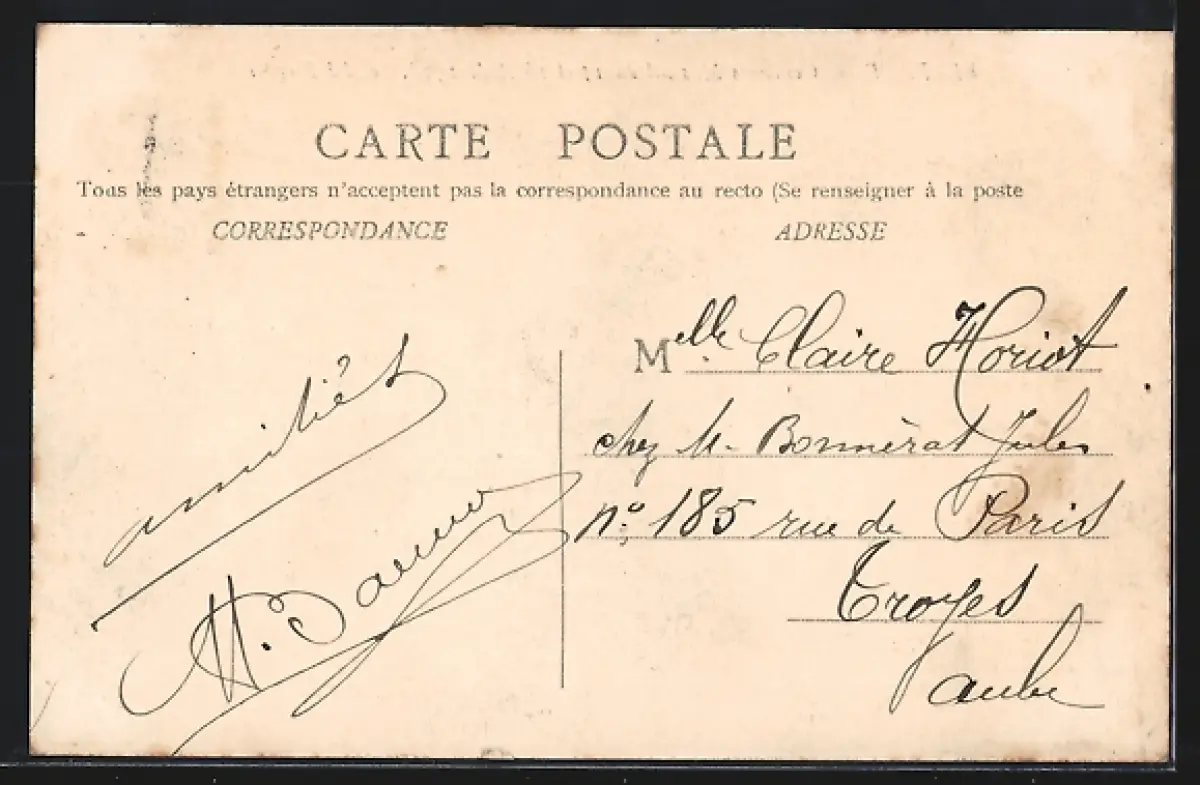 CARTE POSTALE
Tous les pays étrangers n'acceptent pas la correspondance au recto (Se renseigner à la poste
CORRESPONDANCE
ADRESSE
amitiés
Melle Claire Horiot
chez M. Bonnérat Jules
n° 185 rue de Paris
Troyes
aube